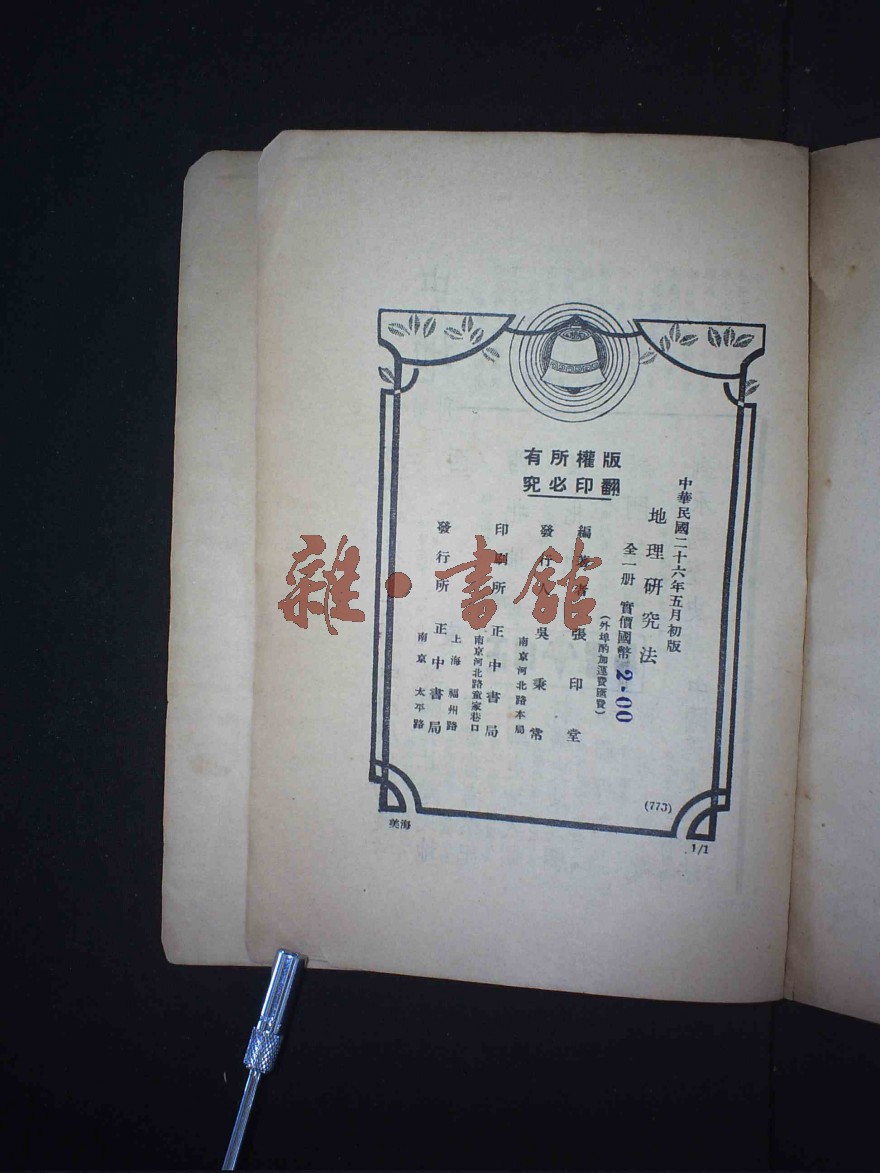 版權所有
翻印必究
中華民國二十六年五月初版
地理研究法
全一册 實價國幣 2.00
(外埠酌加運費匯費)
編著者 張印堂
發行人 吳秉常
南京河北路本局
印刷所 正中書局
南京河北路童家巷口
發行所 正中書局
上海福州路
南京太平路
(773)
美海
1/1
雜·書館